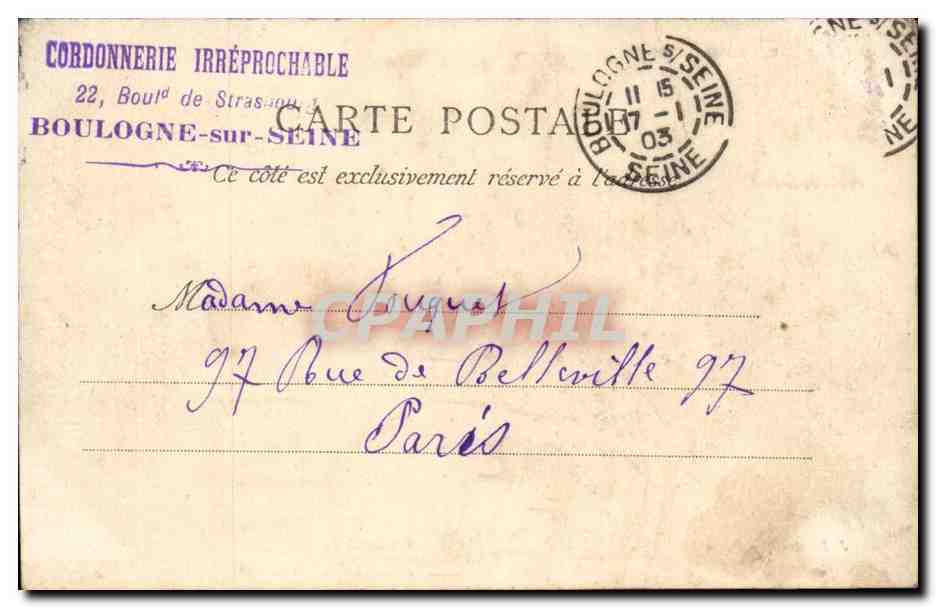 CORDONNERIE IRRÉPROCHABLE
22, Boulᵈ de Strasbourg
BOULOGNE-sur-SEINE
CARTE POSTALE
Ce côté est exclusivement réservé à l'adresse
BOULOGNE S/SEINE
11 15
17 - 1
03
SEINE
NE S/SEIN
1
NE
Madame Fouquet
CPAPHIL
97 Rue de Belleville 97
Paris